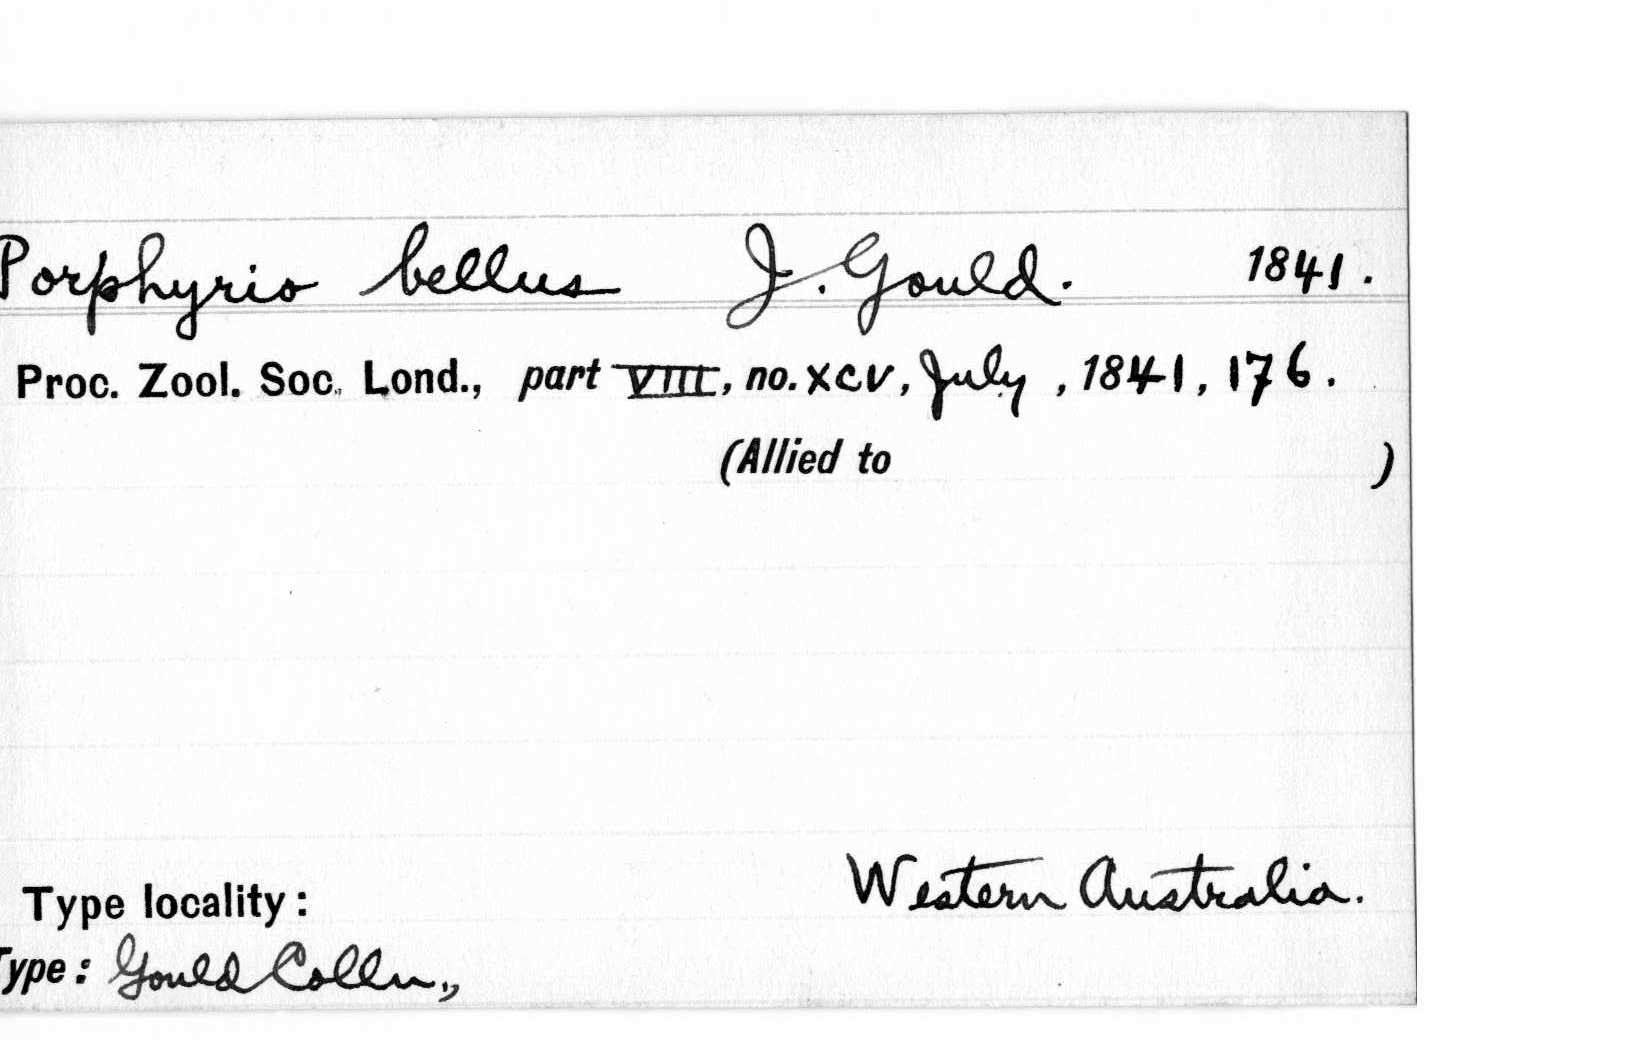 Porphyrio bellus J. Gould. 1841.
Proc. Zool. Soc. Lond., part VIII, no. XCV, July, 1841, 176.
(Allied to )
Type locality: Western Australia.
Type: Gould Colln.,